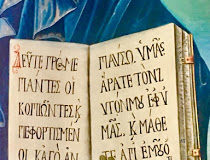 ΔΕῦΤΕ ΠΡΌC ΜΕ
ΠΑΝΤΕC ΟἹ
ΚΟΠΙῶΝΤΕC Κ
ΠΕΦΟΡΤΙCΜΕΝ
ΟΙ ΚΑΓΏ ΑΝ
ΠΑΥCΩ ὙΜᾶC
ΑΡΑΤΕ ΤΟΝ Ζ
ΥΓΟΝ ΜΟΥ ΕΦ Υ
ΜᾶC, Κ ΜΑΘΕ
ΤΕ ΑΠ ΕΜΟῦ